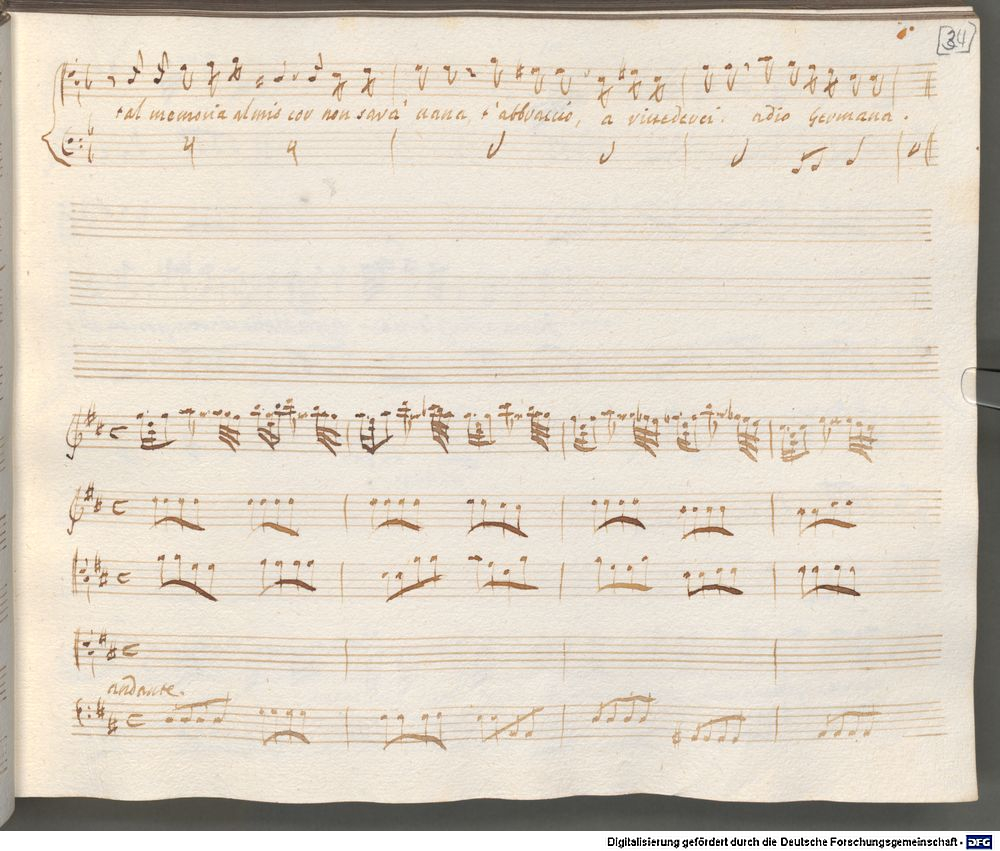 34
tal memoria al mio cor non sarà vana, t'abbraccio, a rivederci. adio Germana.
andante.
Digitalisierung gefördert durch die Deutsche Forschungsgemeinschaft - DFG